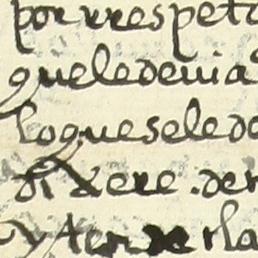 por rrespeto
que le devia
lo que se le de
dixere . den
yten